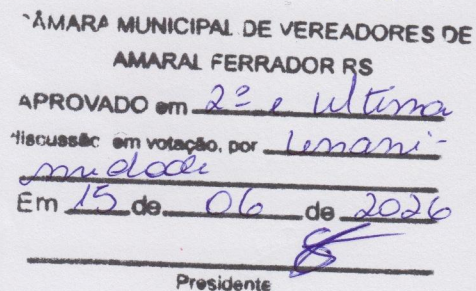 CÂMARA MUNICIPAL DE VEREADORES DE
AMARAL FERRADOR RS
APROVADO em 2ª e ultima
discussão em votação, por unani-
midade
Em 15 de 06 de 2026
Presidente